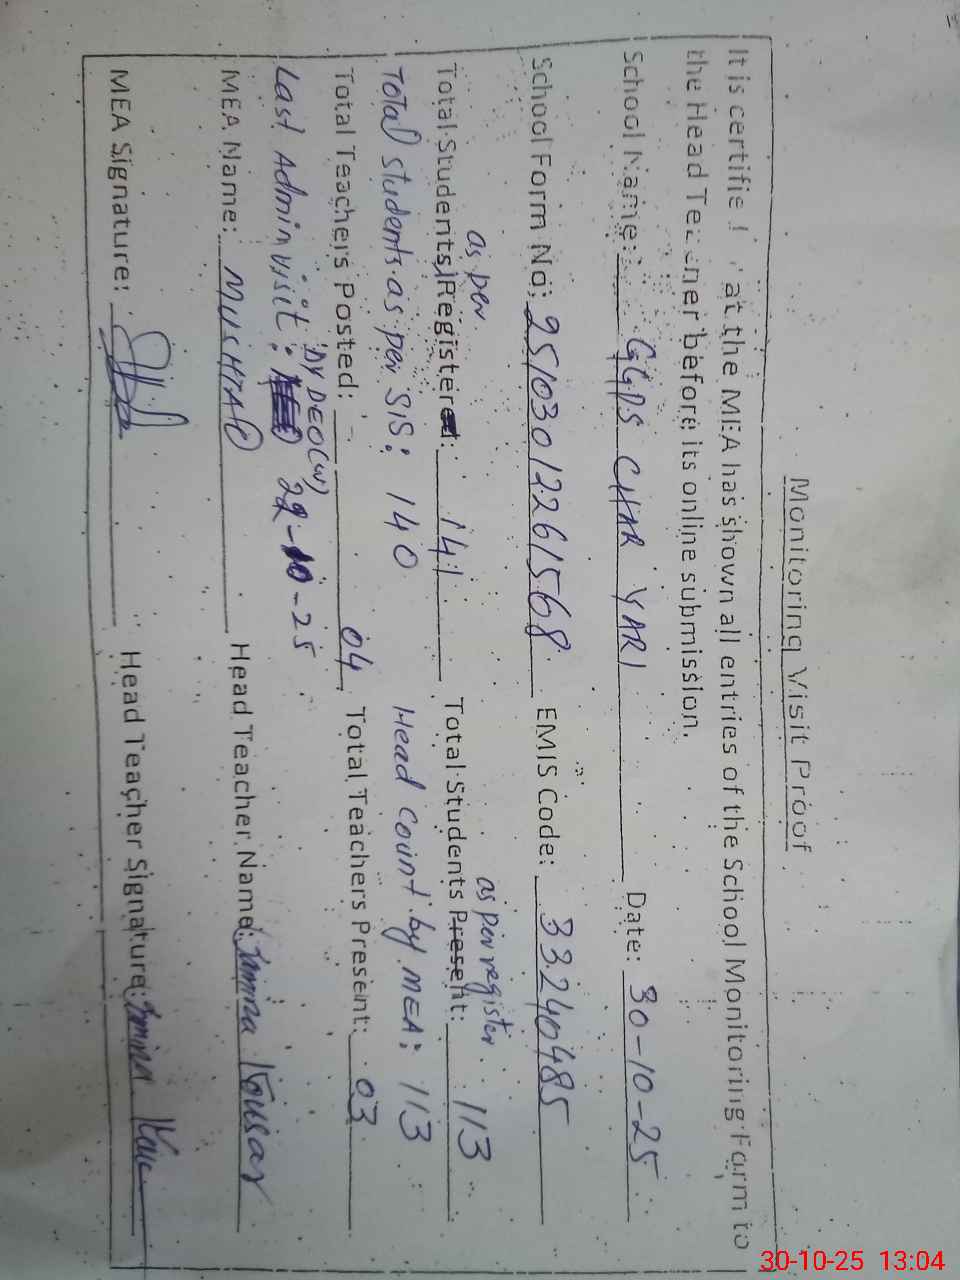 Monitoring Visit Proof
It is certified that the MEA has shown all entries of the School Monitoring Form to
the Head Teacher before its online submission.
School Name: GGPS CHAR YARI Date: 30-10-25
School Form No: 25103012261568 EMIS Code: 33240485
as per as per register
Total Students Registered: 141 Total Students Present: 113
Total students as per SIS: 140 Head Count by MEA: 113
Total Teachers Posted: 04 Total Teachers Present: 03
Last Admin visit: DY DEO(W) 22-10-25
MEA Name: MUSHTAQ Head Teacher Name: Kousar
MEA Signature: Head Teacher Signature:
30-10-25 13:04